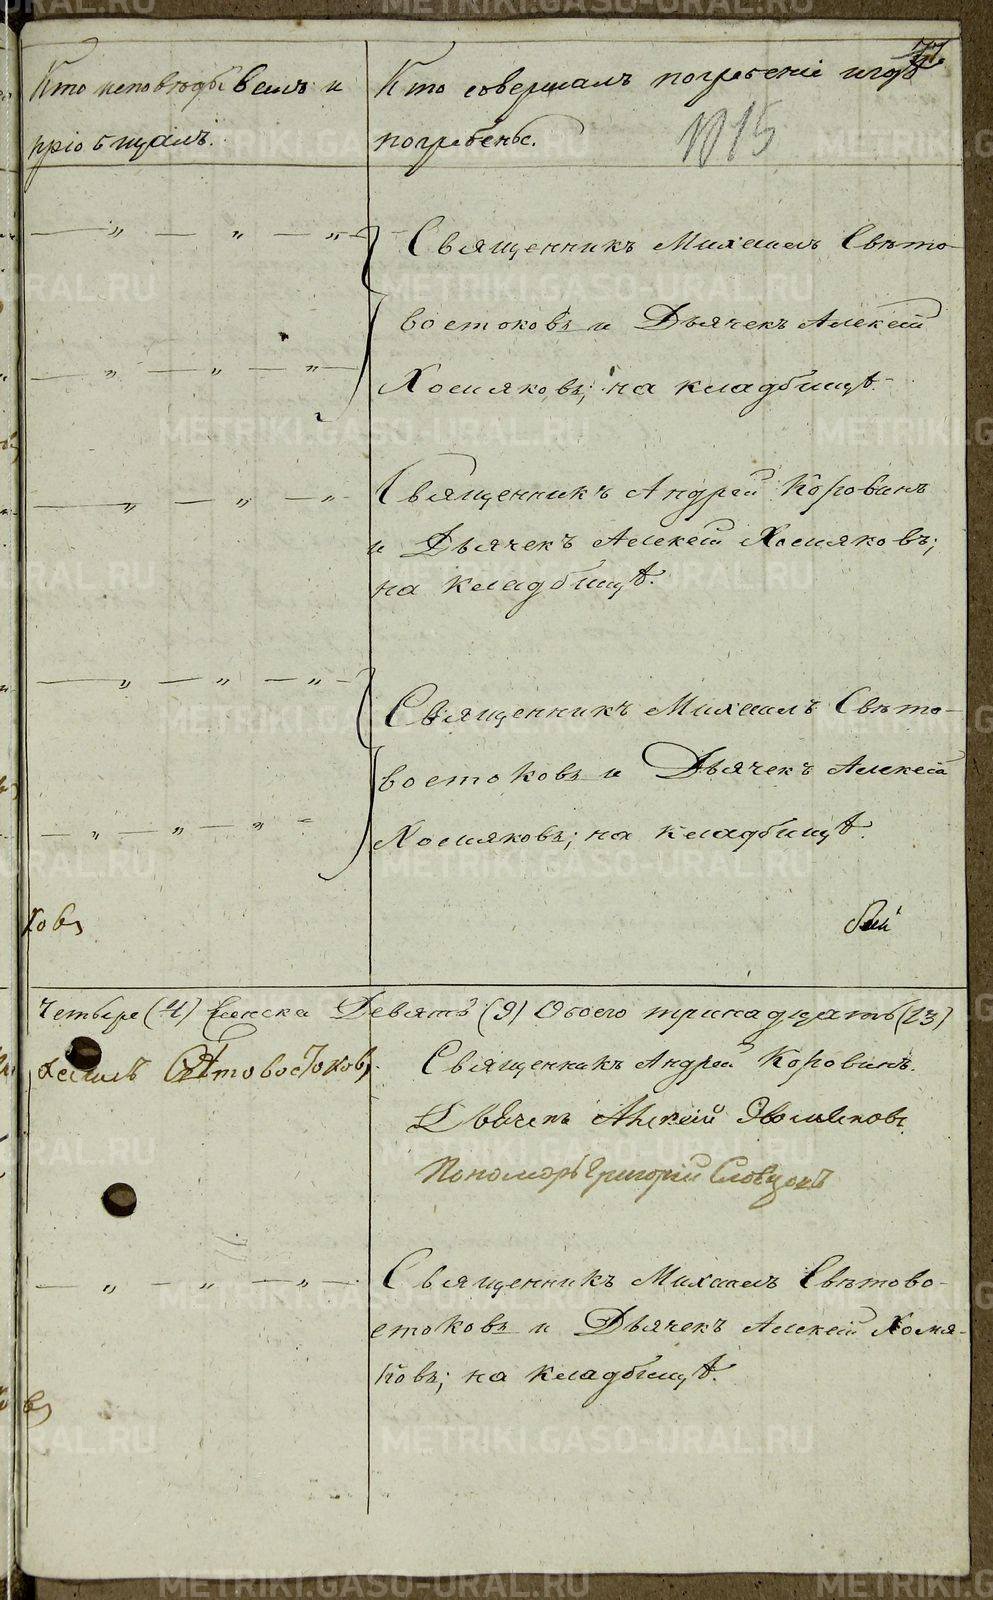 77
Кто исповѣдывалъ и
пріобщалъ.
Кто совершалъ погребеніе и гдѣ
погребены.
1015
Священникъ Михаилъ Свѣто-
востоковъ и Дьячекъ Алексѣй
Хомяковъ; на кладбищѣ.
Священникъ Андрей Коровинъ
и Дьячекъ Алексѣй Хомяковъ;
на кладбищѣ.
Священникъ Михаилъ Свѣто-
востоковъ и Дьячекъ Алексѣй
Хомяковъ; на кладбищѣ.
ковъ
Четыре (4) Женска Девять (9) Обоего тринадцать (13)
хаилъ Свѣтовостоковъ.
Священникъ Андрей Коровинъ.
Дьячекъ Алексѣй Хомяковъ.
Пономарь Григорій Словцовъ
Священникъ Михаилъ Свѣтово-
стоковъ и Дьячекъ Алексѣй Хомя-
ковъ; на кладбищѣ.
въ
METRIKI.GASO-URAL.RU